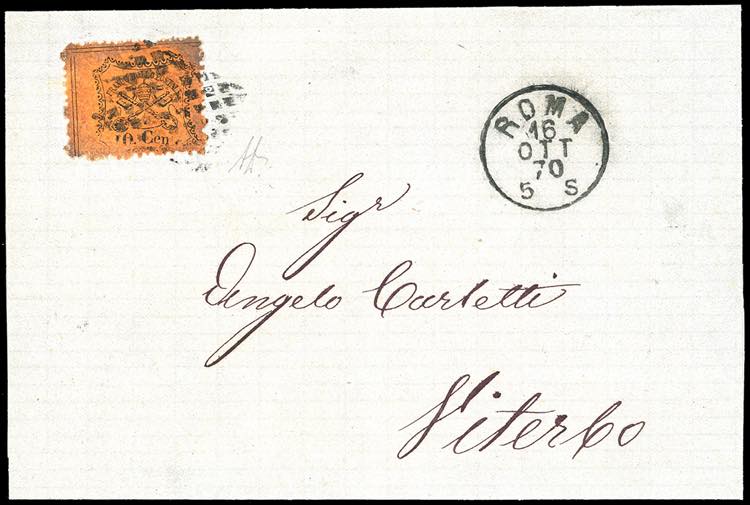 10 Cen
ROMA
16
OTT
70
5 S
Sigr
Angelo Carletti
Viterbo